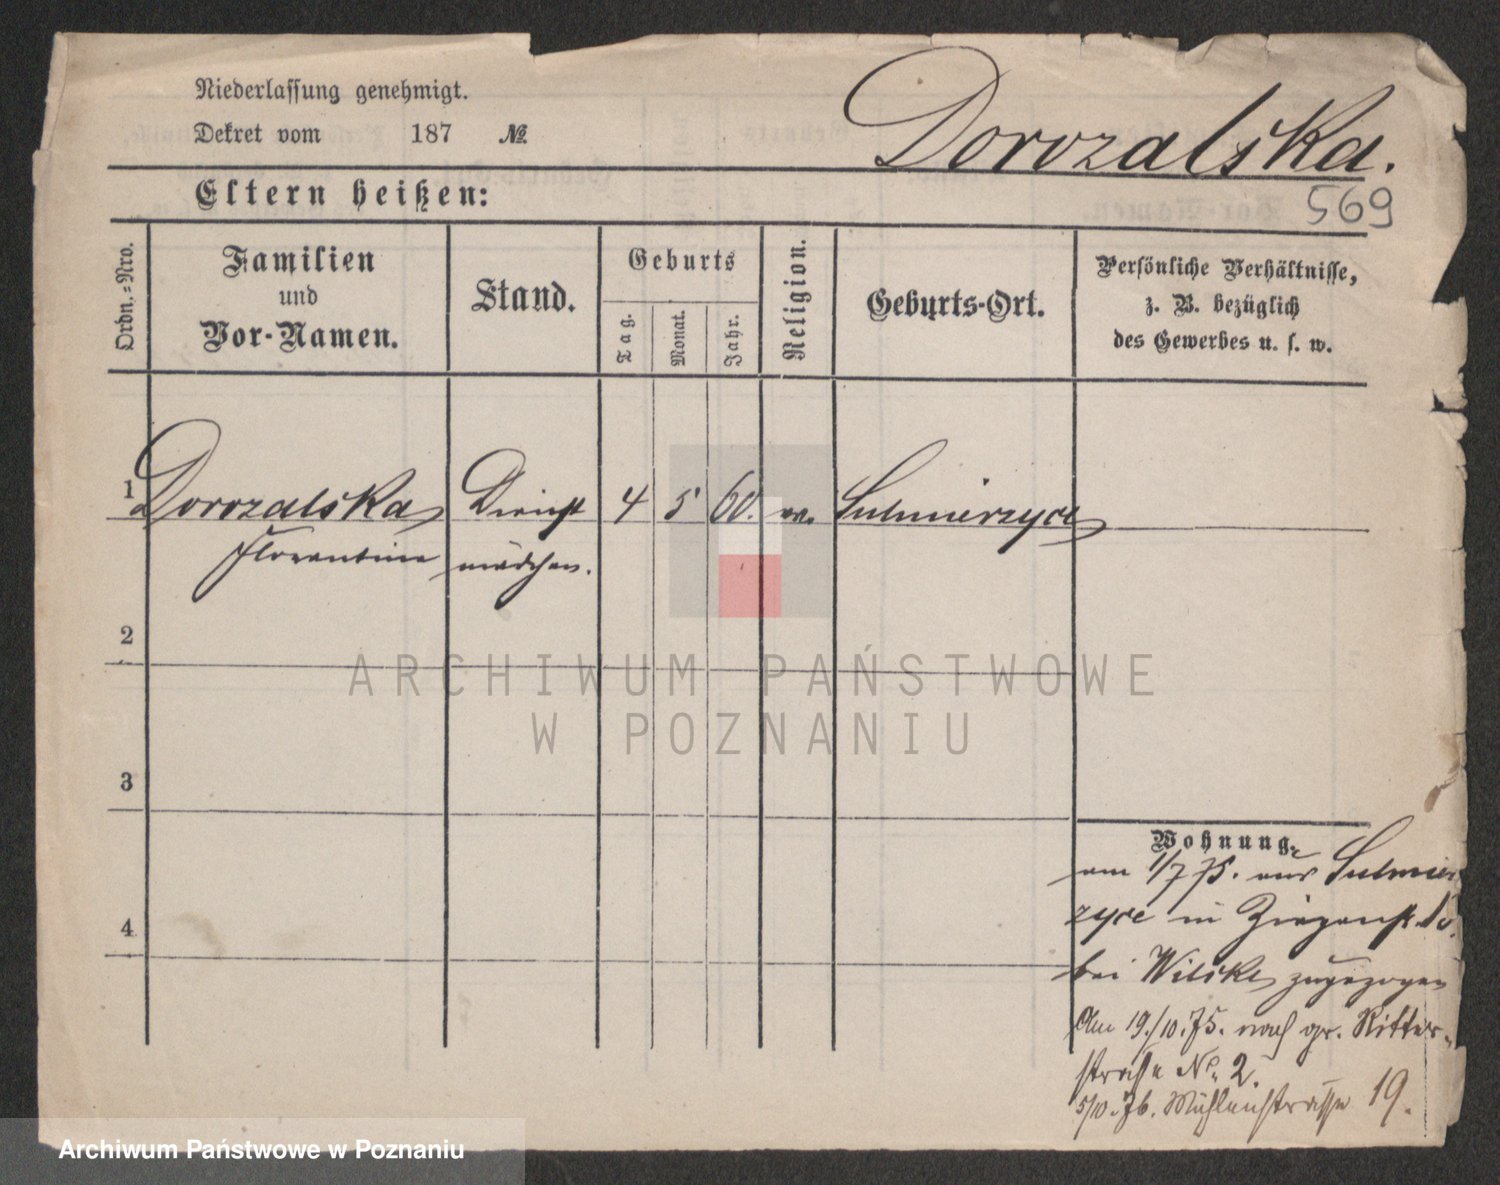 Niederlassung genehmigt.
Dekret vom 187 №
Dorozalska.
569
Eltern heißen:
Ordn.-Nro.
Familien
und
Vor-Namen.
Stand.
Geburts
Tag.
Monat.
Jahr.
Religion.
Geburts-Ort.
Persönliche Verhältnisse,
z. B. bezüglich
des Gewerbes u. s. w.
1 Dorozalska Dienst 4 5 60. Sulmierzyce
Florentine mädchen.
2
3
4
Wohnung.
am 1/7 75. aus Sulmier
zyce in Ziegenstr. 10.
bei Wilske zugezogen
Am 19./10.75. nach gr. Ritter-
strasse No. 2.
5/10.76. Mühlenstrasse 19.
ARCHIWUM PAŃSTWOWE
W POZNANIU
Archiwum Państwowe w Poznaniu